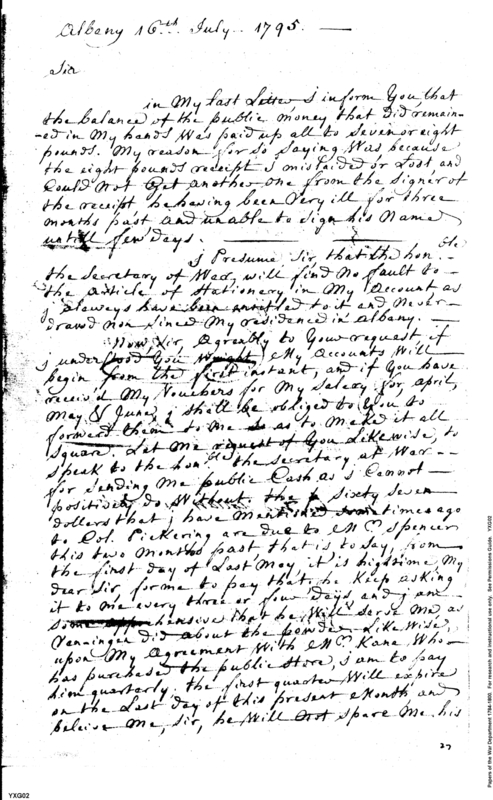 Albany 16th July. 1795. —
Sir
in My last Letter j inform You that
the balance of the public money that did remain-
-ed in My hands Was paid up all to seven or eight
pounds. My reason for so saying Was because
the eight pounds receipt j mislaided or Lost and
Could not Get another one from the signer of
the receipt he having been Very ill for three
months past and unable to sign his Name
untill few days.
j Presume Sir, that the honble
the secretary of War, will find No fault to
the article of stationery in My Account as
j aleways have been entitled to it and Never
drawd non sined My residence in Albany. —
Now Sir, Agreably to Your request, if
j understood You Wright, My Accounts Will
begin from the first instant, and if You have
receiv'd My Vouchers for My Salary for, April,
May & June, j shall be obliged to You to
forward them to Me so as to Make it all
square. Let Me request of You Likewise, to
speak to the honble the secretary at War --
for sending Me public Cash as j Cannot -
positively do Without. the sixty seven
dollars that j have Mentioned sometimes ago
to Col. Pickering are due to Mr. Spencer
this two Months past that is to say, from
the first day of Last May, it is high time, My
dear Sir, for me to pay that; he Keep asking
it to Me every three or few days, and j am
some apprehensive that he Will serve Me as
Vanningen did about the powder. Like Wise,
upon My Agreement With Mr. Kane Who
has purchased the public store, j am to pay
him quarterly, the first quarter Will expire
on the Last day of this present Month and
beleive Me, Sir, he Will Not spare Me his
27
YXG02
Papers of the War Department 1784-1800. For research and instructional use only. See Permissions Guide. YXG02